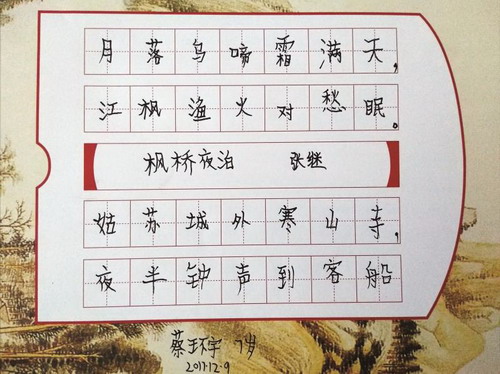 月落乌啼霜满天,
江枫渔火对愁眠。
枫桥夜泊 张继
姑苏城外寒山寺,
夜半钟声到客船
蔡环宇 7岁
2017.12.9